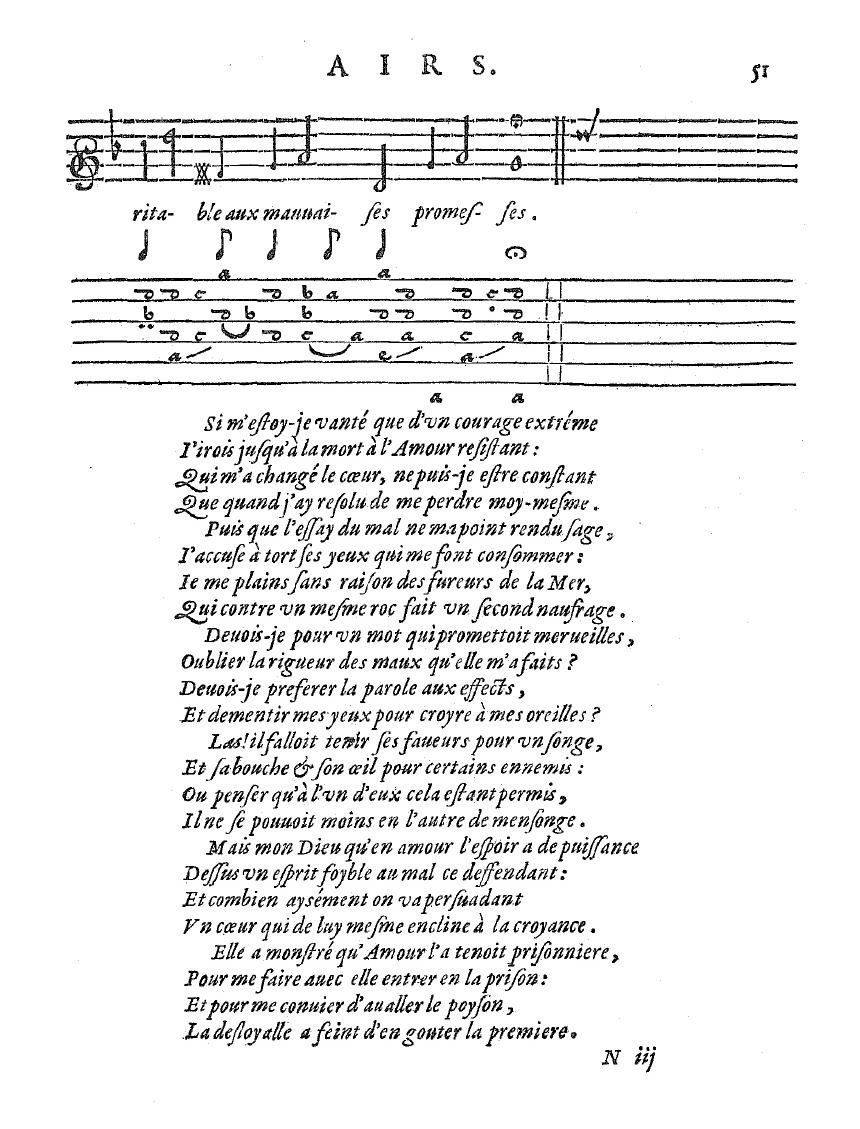 AIRS. 51
rita- ble aux mauuai- ſes promeſ- ſes.
Si m'eſtoy-je vanté que d'vn courage extréme
I'irois juſqu'à la mort à l'Amour reſiſtant :
Qui m'a changé le cœur, ne puis-je eſtre conſtant
Que quand j'ay reſolu de me perdre moy-meſme.
Puis que l'eſſay du mal ne ma point rendu ſage,
I'accuſe à tort ſes yeux qui me font conſommer :
Ie me plains ſans raiſon des fureurs de la Mer,
Qui contre vn meſme roc fait vn ſecond naufrage.
Deuois-je pour vn mot qui promettoit merueilles,
Oublier la rigueur des maux qu'elle m'a faits ?
Deuois-je preferer la parole aux effects,
Et dementir mes yeux pour croyre à mes oreilles ?
Las! il falloit tenir ſes faueurs pour vn ſonge,
Et ſa bouche & ſon œil pour certains ennemis :
Ou penſer qu'à l'vn d'eux cela eſtant permis,
Il ne ſe pouuoit moins en l'autre de menſonge.
Mais mon Dieu qu'en amour l'eſpoir a de puiſſance
Deſſus vn eſprit foyble au mal ce deffendant :
Et combien ayſément on va perſuadant
Vn cœur qui de luy meſme encline à la croyance.
Elle a monſtré qu'Amour l'a tenoit priſonniere,
Pour me faire auec elle entrer en la priſon :
Et pour me conuier d'aualler le poyſon,
La desloyalle a feint d'en gouter la premiere.
N iij